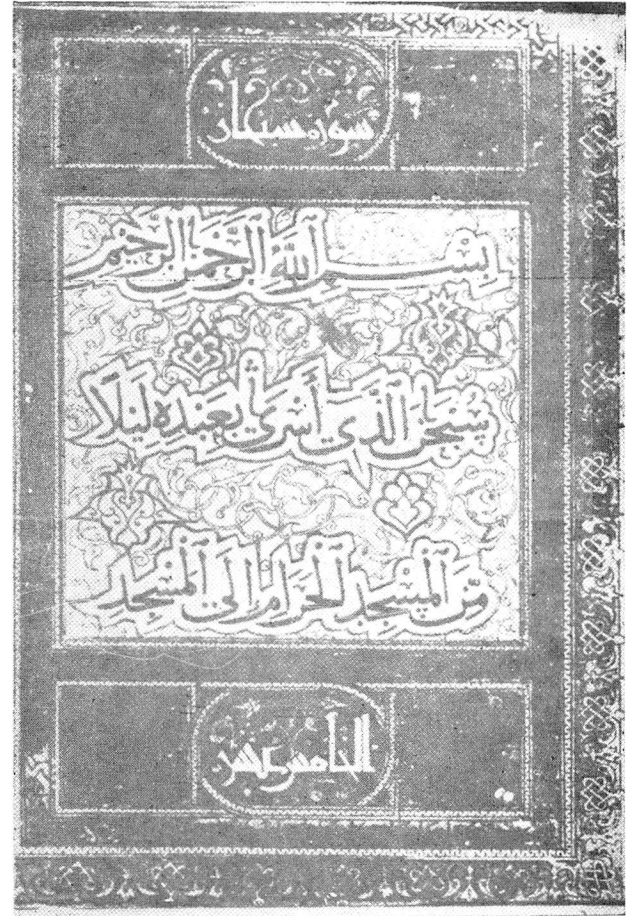 سورة سبحان
بِسْمِ اللَّهِ الرَّحْمَٰنِ الرَّحِيمِ
سُبْحَٰنَ الَّذِي أَسْرَىٰ بِعَبْدِهِ لَيْلًا
مِنَ الْمَسْجِدِ الْحَرَامِ إِلَى الْمَسْجِدِ
الخامس عشر